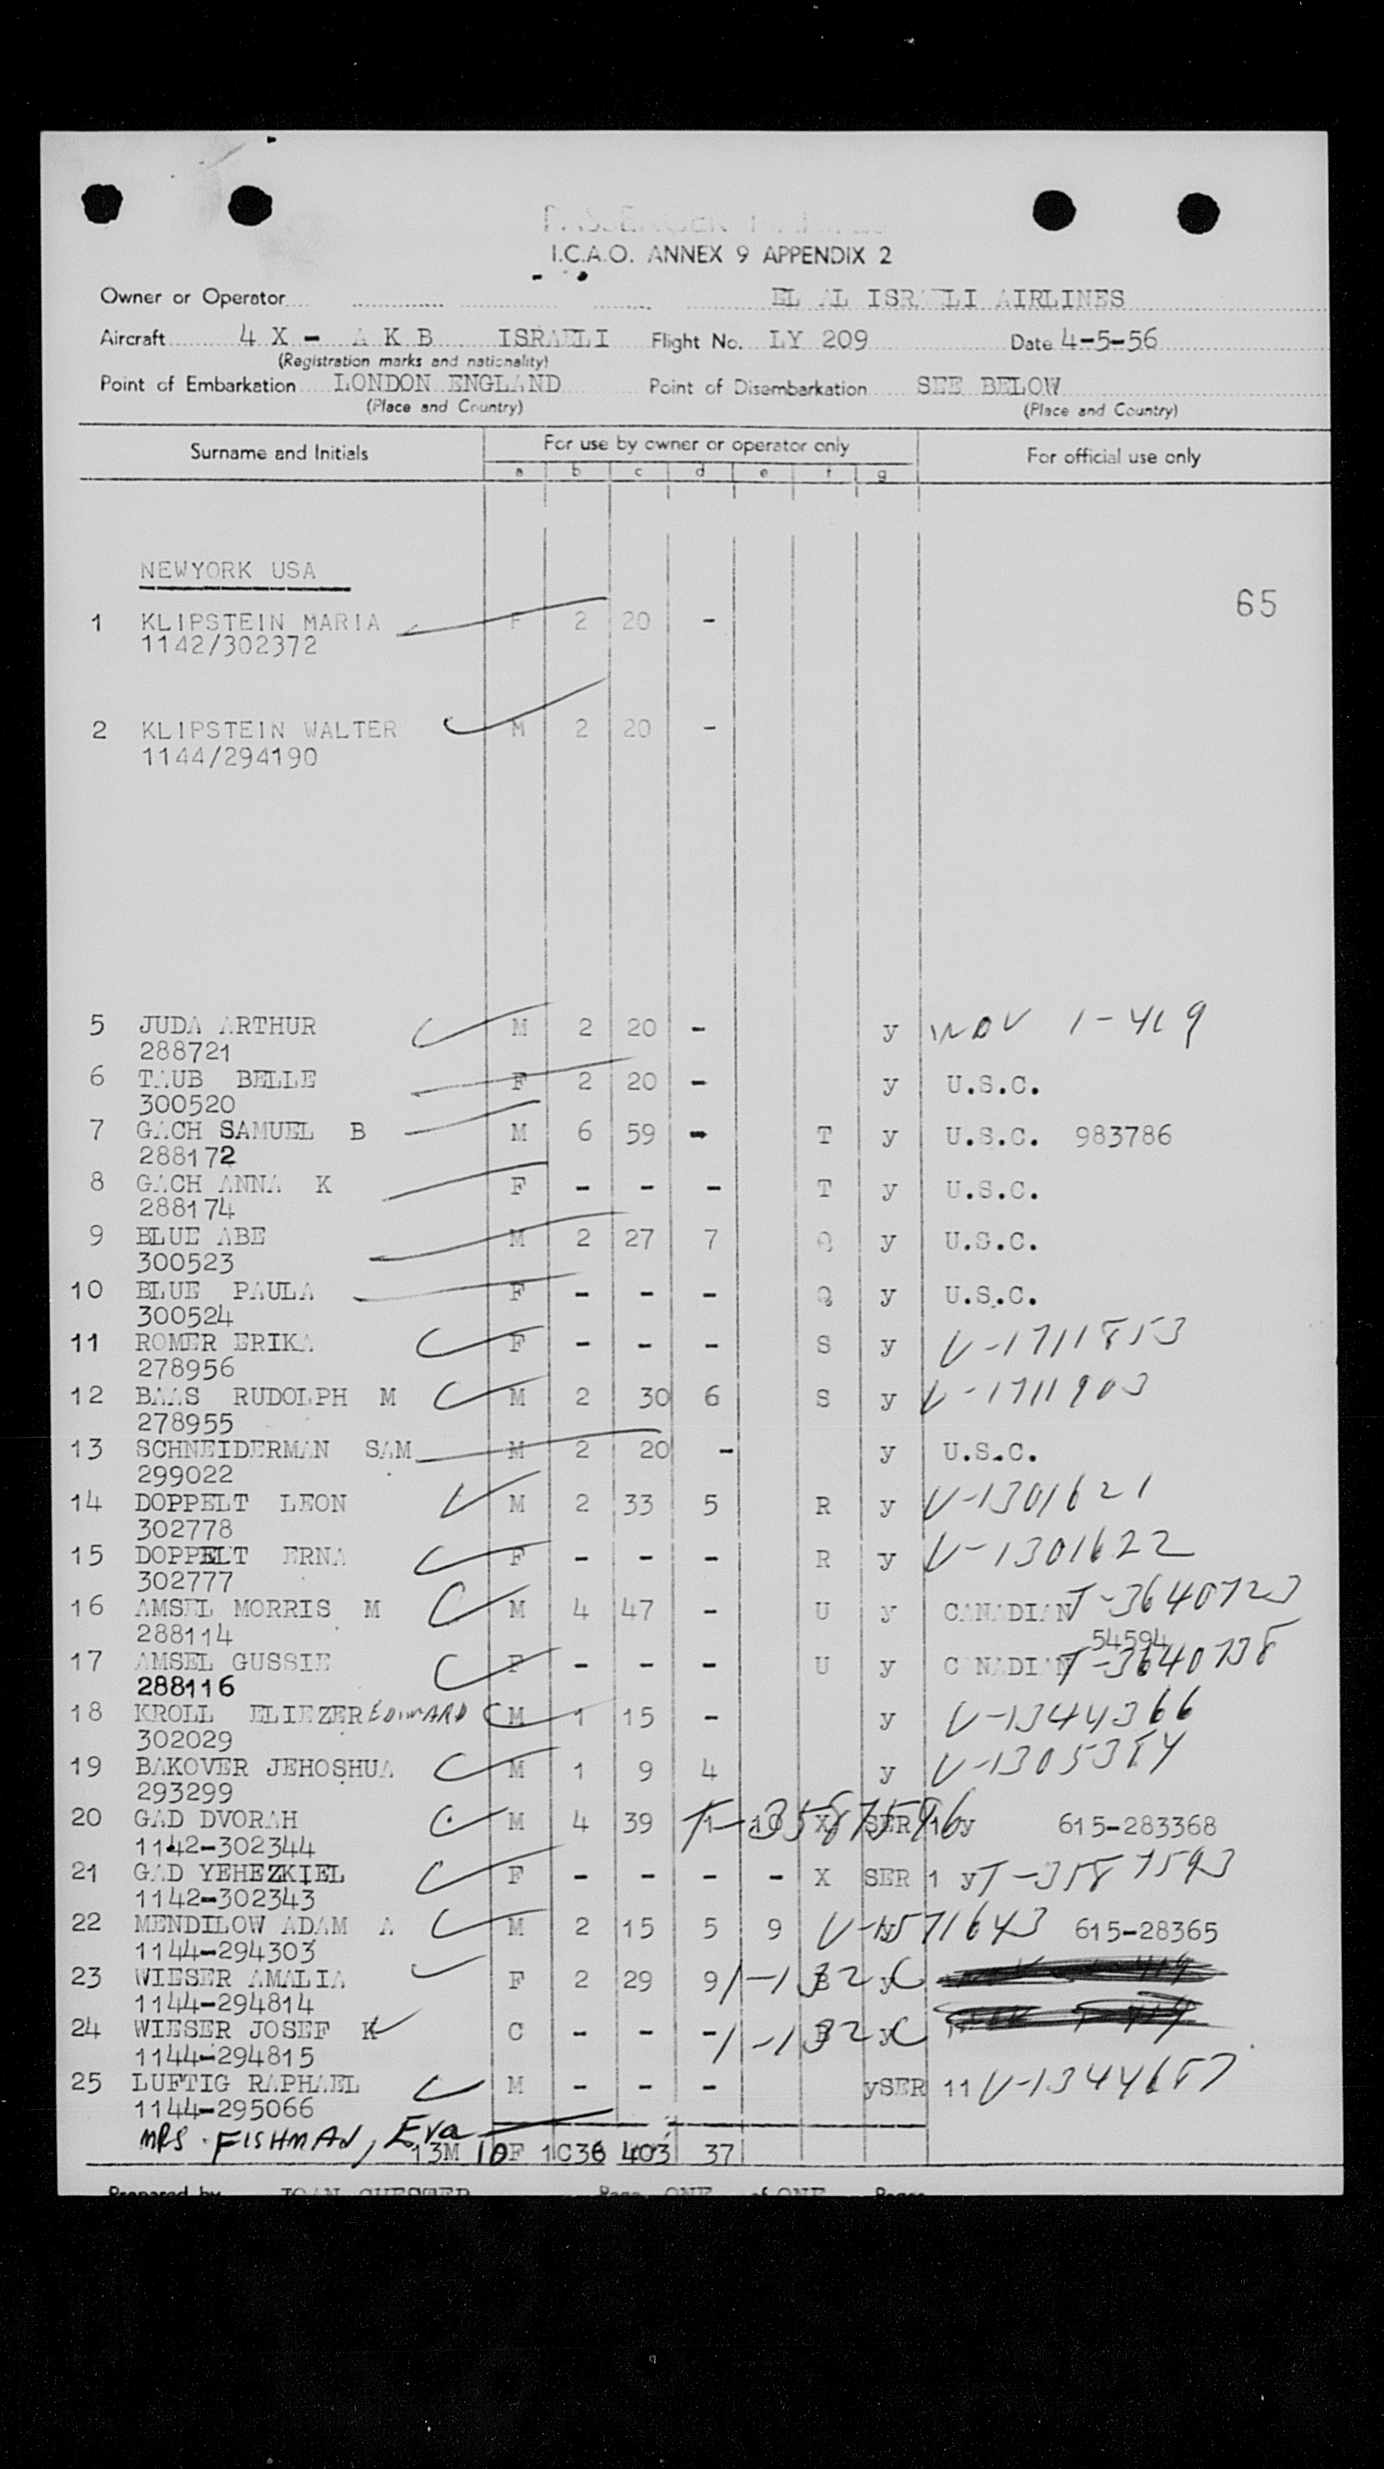 PASSENGER MANIFEST
I.C.A.O. ANNEX 9 APPENDIX 2
Owner or Operator EL AL ISRAELI AIRLINES
Aircraft 4 X - A K B ISRAELI Flight No. LY 209 Date 4-5-56
(Registration marks and nationality)
Point of Embarkation LONDON ENGLAND Point of Disembarkation SEE BELOW
(Place and Country) (Place and Country)
Surname and Initials For use by owner or operator only For official use only
a b c d e f g
NEWYORK USA
65
1 KLIPSTEIN MARIA F 2 20 -
1142/302372
2 KLIPSTEIN WALTER M 2 20 -
1144/294190
5 JUDA ARTHUR M 2 20 - y 1-419
288721
6 TAUB BELLE F 2 20 - y U.S.C.
300520
7 GACH SAMUEL B M 6 59 - T y U.S.C. 983786
288172
8 GACH ANNA K F - - - T y U.S.C.
288174
9 BLUE ABE M 2 27 7 Q y U.S.C.
300523
10 BLUE PAULA F - - - Q y U.S.C.
300524
11 ROMER ERIKA F - - - S y V-1711853
278956
12 BAAS RUDOLPH M M 2 30 6 S y V-1711903
278955
13 SCHNEIDERMAN SAM M 2 20 - y U.S.C.
299022
14 DOPPELT LEON M 2 33 5 R y V-1301621
302778
15 DOPPELT ERNA F - - - R y V-1301622
302777
16 AMSEL MORRIS M M 4 47 - U y CANADIAN T-3640723
288114 54594
17 AMSEL GUSSIE F - - - U y CANADIAN T-3640738
288116
18 KROLL ELIEZER EDWARD M 1 15 - y V-1344366
302029
19 BAKOVER JEHOSHUA M 1 9 4 y V-1305384
293299
20 GAD DVORAH M 4 39 11 10 X SER 1 y T-3587596 615-283368
1142-302344
21 GAD YEHEZKIEL F - - - - X SER 1 y T-3587593
1142-302343
22 MENDILOW ADAM A M 2 15 5 9 y V-1571643 615-28365
1144-294303
23 WIESER AMALIA F 2 29 9 B y 1-132 C
1144-294814
24 WIESER JOSEF K C - - - B y 1-132 C
1144-294815
25 LUFTIG RAPHAEL M - - - ySER 11 V-1344657
1144-295066
MRS. FISHMAN, Eva
13M 10F 1C 36 403 37
Prepared by JOAN CHESTER Page ONE of ONE Pages